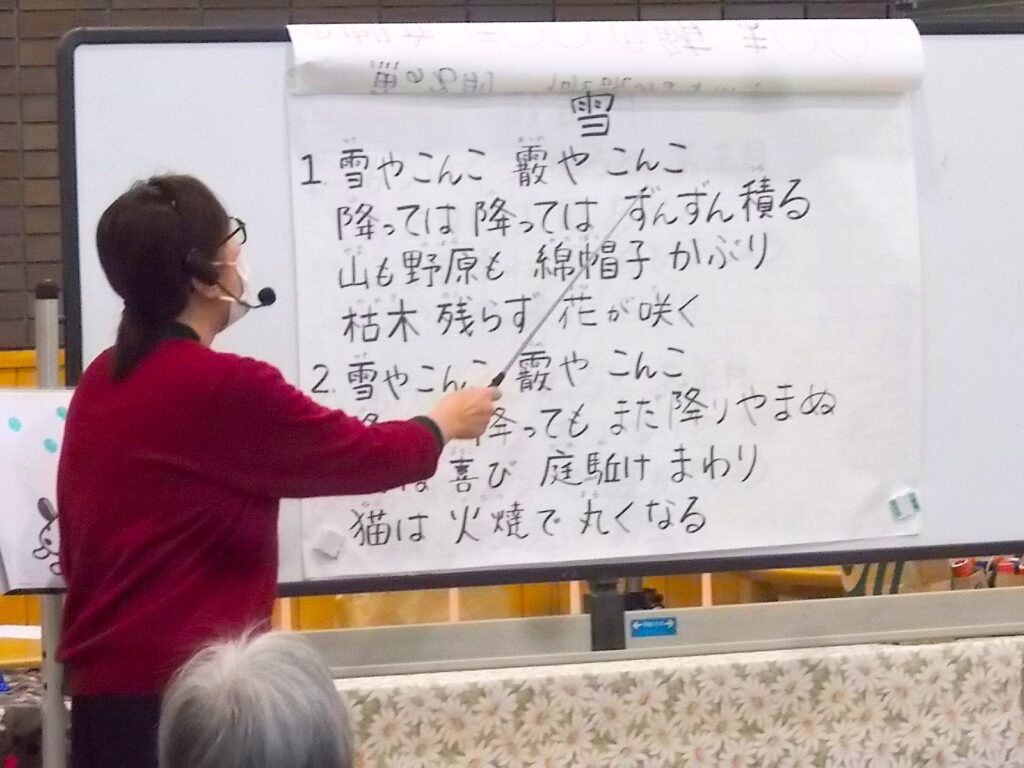 雪
1. 雪やこんこ 霰や こんこ
降っては 降っては ずんずん積る
山も野原も 綿帽子 かぶり
枯木 残らず 花が咲く
2. 雪やこんこ 霰や こんこ
降っても まだ降りやまぬ
は 喜び 庭駈け まわり
猫は 火燵で 丸くなる